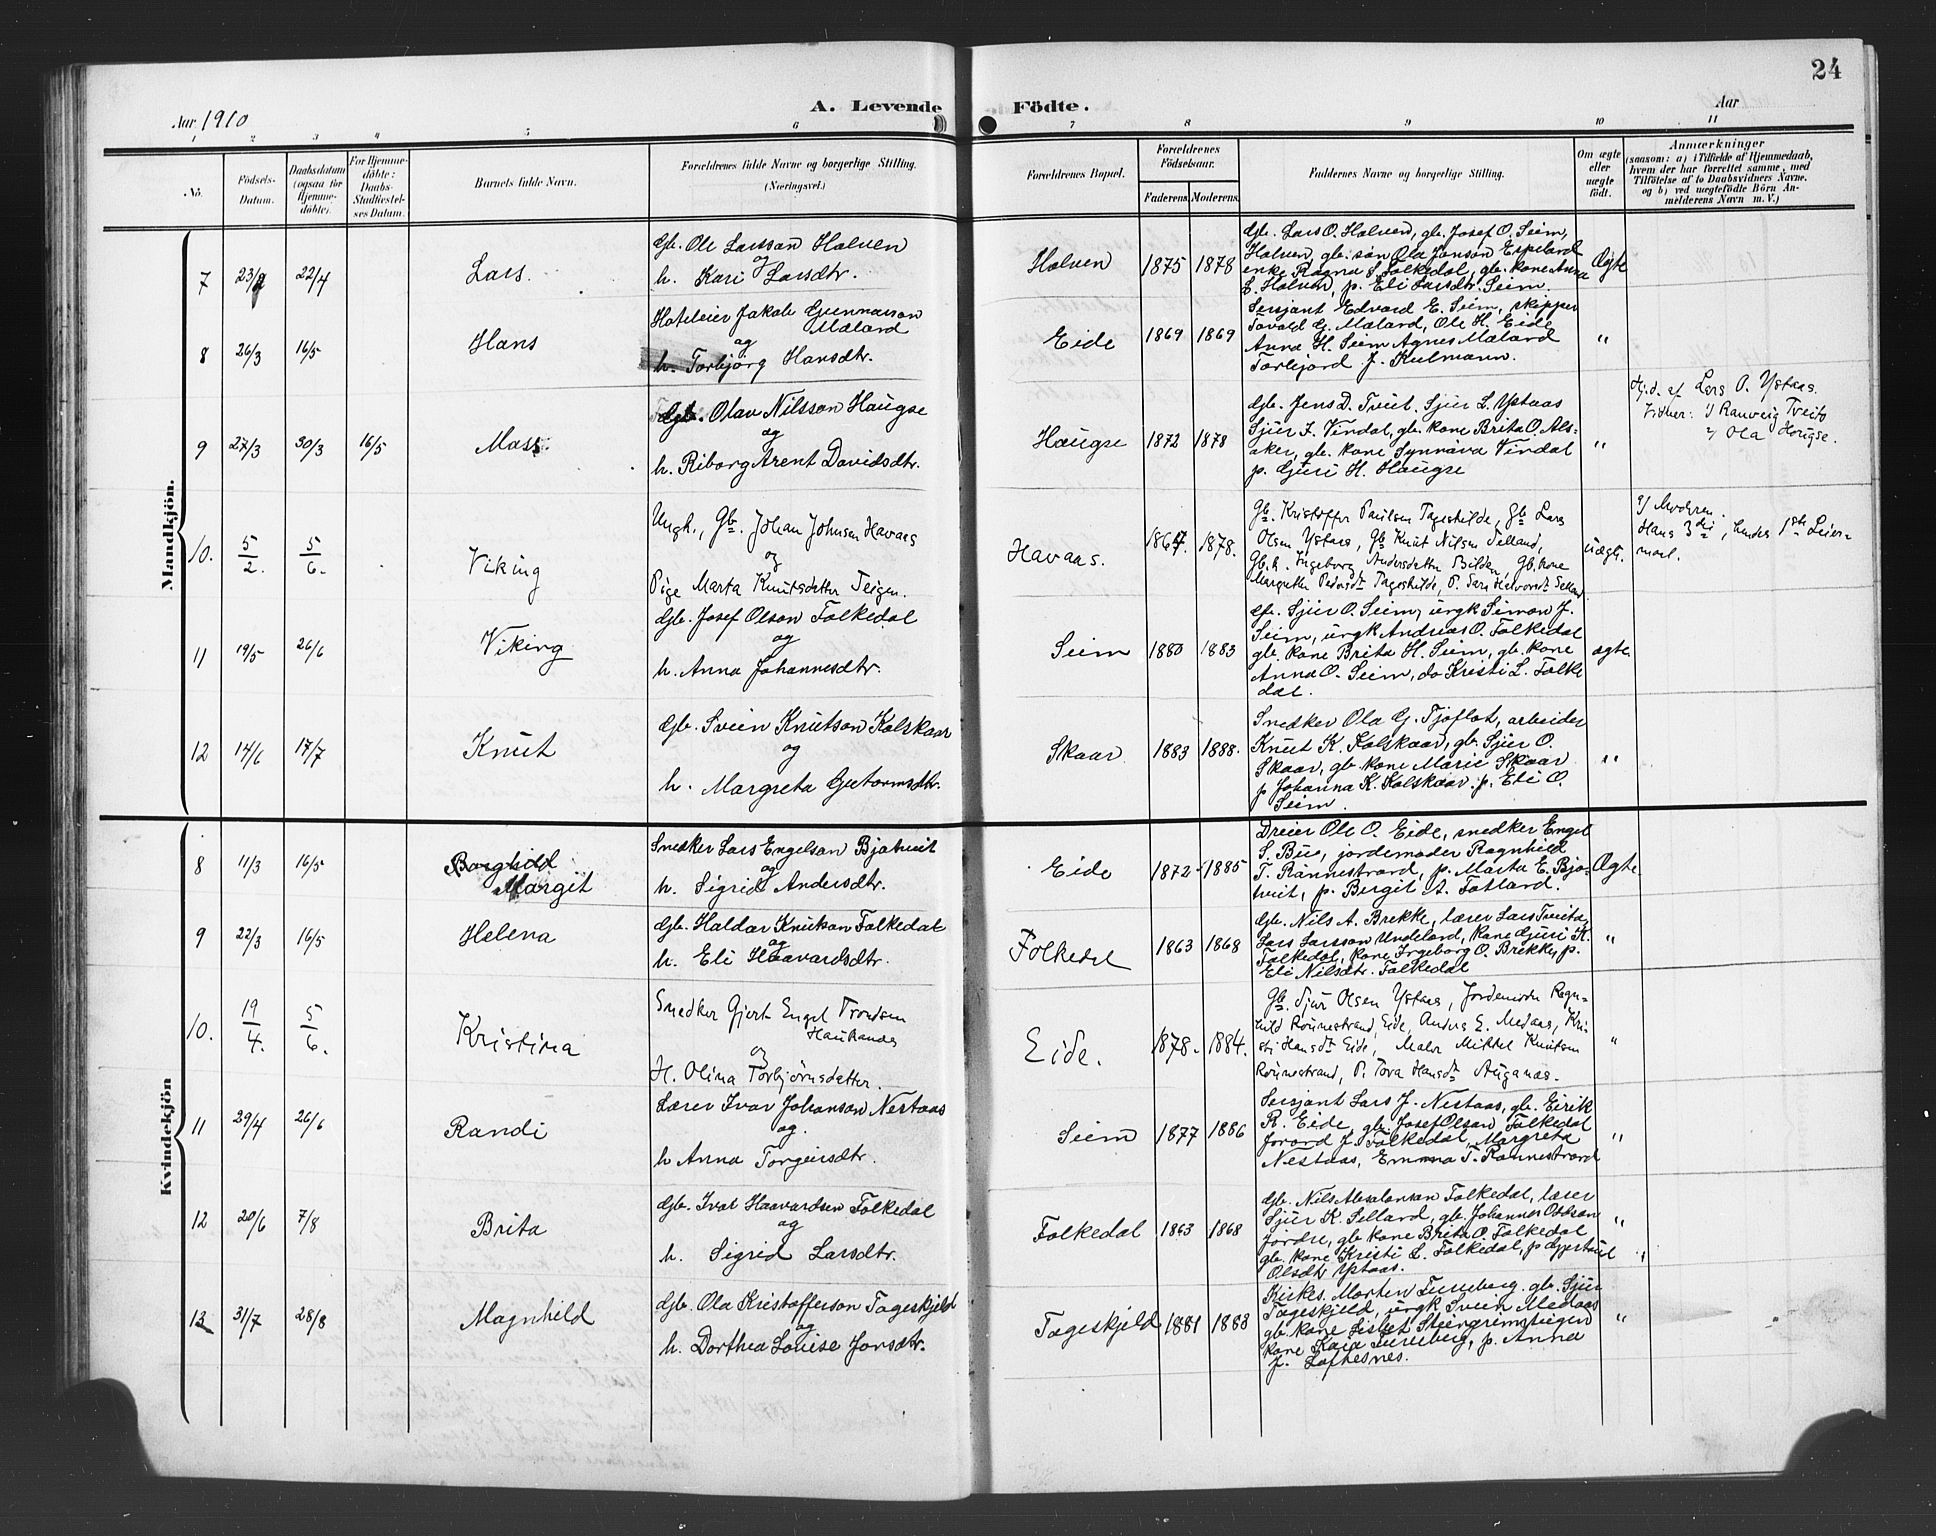 24
Aar 1910
A. Levende
Födte.
Aar
1 2 3 4 5 6 7 8 9 10 11
No.
Födsels-
Datum.
Daabsdatum
(ogsaa for
Hjemme-
döbte).
For Hjemme-
döbte:
Daabs-
Stadfæstel-
ses Datum.
Barnets fulde Navn.
Forældrenes fulde Navne og borgerlige Stilling.
(Næringsvei.)
Forældrenes Bopæl.
Forældrenes
Födselsaar.
Faderens. Moderens.
Faddernes Navne og borgerlige Stilling.
Om ægte
eller
uægte
födt.
Anmærkninger
(saasom: a) i Tilfælde af Hjemmedaab,
hvem der har forrettet samme, med
Tilföielse af to Daabsvidners Navne.
og b) ved uægtefödte Börn An-
melderens Navn m. V.)
Mandkjön.
7 22/4 Lars.
Gb. Ole Larsson Halven
og
h. Kari Larsdtr.
Halven 1875 1878
Gb. Lars O. Halven, gb. Josef O. Seim,
Halven, gb. søn Ola Jonson Espeland
enke Ragna S. Folkedal, gb. kone Anna
L. Halven, p. Eli Larsdtr. Seim.
Ægte
8 26/3 16/5 Hans
Hoteleier Jakob Gunnarson
Mæland
og
h. Torbjörg Hansdtr.
Eide 1869 1869
Sersjant Edvard E. Seim, skipper
Tovald G. Mæland, Ole H. Eide
Anna H. Seim Agnes Mæland
Torbjord J. Kulmann.
"
9 27/3 30/3 16/5 Mass.
Gb. Olav Nilsson Haugse
og
h. Riborg Arent Davidsdtr.
Haugse 1872 1878
Gb. Jens D. Tveit, Sjur L. Ystaas
Sjur I. Vindal, gb. kone Brita O. Als-
aker, gb. kone Synnöva Vindal
p. Guri H. Haugse
"
Hj.d. af Lars O. Ystaas.
Vidner: 1/ Ranveig Tveito
2/ Ola Haugse.
10. 5/2. 5/6. Viking
Ungk., Gb. Johan Johnsen Havaas
og
Pige Marta Knutsdatter Teigen.
Havaas. 1864. 1878.
Gb. Kristoffer Paulsen Tageskilde, Gb Lars
Olsen Ystaas, Gb Knut Nilsen Selland,
Gb. k. Ingeborg Andersdatter Bilden, Gb. kone
Margretha Pedersdt Tageskilde, P. Sara Halvorsdt Selland
uægte.
a/ Moderen.
Hans 3di, hendes 1ste Leier-
maal.
11 19/5 26/6 Viking
Gb. Josef Olson Folkedal
og
h. Anna Johannesdtr.
Seim 1880 1883
Gb. Sjur O. Seim, ungk Simon J.
Seim, ungk Andreas O. Folkedal
gb. kone Brita H. Seim, gb. kone
Anna O. Seim, do Kristi L. Folke
dal.
ægte.
12 14/6 17/7 Knut
Gb. Svein Knutson Kolskaar
og
h. Margreta Guttormsdtr.
Skaar 1883 1888.
Snedker Ola G. Tjoflot, arbeider
Knut K. Kolskaar, gb. Sjur O.
Skaar, gb kone Marie Skaar
p Johanna K. Kolskaar. p. Eli O.
Seim.
"
Kvindekjön
8 11/3 16/5 Borghild
Margit
Snedker Lars Engelson Bjotveit
og
h. Sigrid Andersdtr.
Eide 1872 1885
Dreier Ole O. Eide, snedker Engel
S. Bu, jordemoder Ragnhild
T. Rönnestrand, p. Marta E. Bjo-
tveit, p. Bergit A. Fotland.
Ægte
9 22/3 16/5 Helena
Gb. Haldor Knutson Folkedal
og
h. Eli Haavardsdtr.
Folkedal 1863 1868
Gb. Nils A. Brekke, lærer Lars Tveito,
Lars Larsson Undeland, kone Guri K.
Folkedal, kone Ingeborg O. Brekke, p.
Eli Nilsdtr. Folkedal
"
10. 19/4. 5/6. Kristina
Snedker Gjert Engel Trondsen
Haukanes
og
H. Olina Torbjörnsdatter.
Eide. 1878. 1884.
Gb. Sjur Olsen Ystaas, Jordemoder Ragn-
hild Rönnestrand, Eide, Anders E. Medaas, Kri-
sti Hansdt Eide, Maler Mikkel Knutsen
Rönnestrand, P. Tora Hansdt Auganæs.
"
11 29/4 26/6 Randi
Lærer Ivar Johanson Nestaas
og.
h Anna Torgeirsdtr.
Seim 1877 1886
Sersjant Lars J. Nestaas, gb. Eirik
R. Eide, gb. Josef Olson Folkedal
Jorand J. Folkedal, Margreta
Nestaas, Emma T. Rønnestrand
"
12 20/6 7/8 Brita
Gb. Ivar Haavardson Folkedal
og
h. Sigrid Larsdtr.
Folkedal 1863 1868
Gb. Nils Absalonson Folkedal, lærer
Sjur K. Selland, gb. Johannes Odson
Jordre, gb kone Brita O. Folkedal
gb. kone Kristi L. Folkedal, p
Olsdtr Ystaas.
"
13 31/7 28/8 Magnhild
Gb. Ola Kristofferson Tageskjeld
og
h. Dorthea Louise Jonsdtr.
Tageskjeld 1881 1883
Kirkes. Morten Tureberg, gb. Sjur
Tageskjeld, ungk Svein Medaas
gb. kone Lisbet Steingrimsteigen
kone Kaia Tureberg, p. Anna
J. Lofthesnes.
"